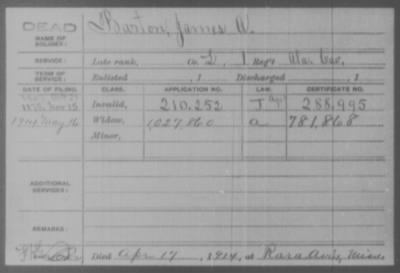 DEAD
NAME OF SOLDIER:
Barton, James A.
SERVICE:
Late rank, Co. L, 1 Reg't Ala. Cav.
TERM OF SERVICE:
Enlisted , 1 Discharged , 1
DATE OF FILING. CLASS. APPLICATION NO. LAW. CERTIFICATE NO.
1875, Nov 15 Invalid, 210,252 288,995
1914 May 16 Widow, 1,027,860 a 781,868
Minor,
ADDITIONAL SERVICES:
REMARKS:
Died Apr 17, 1914, at Miss.